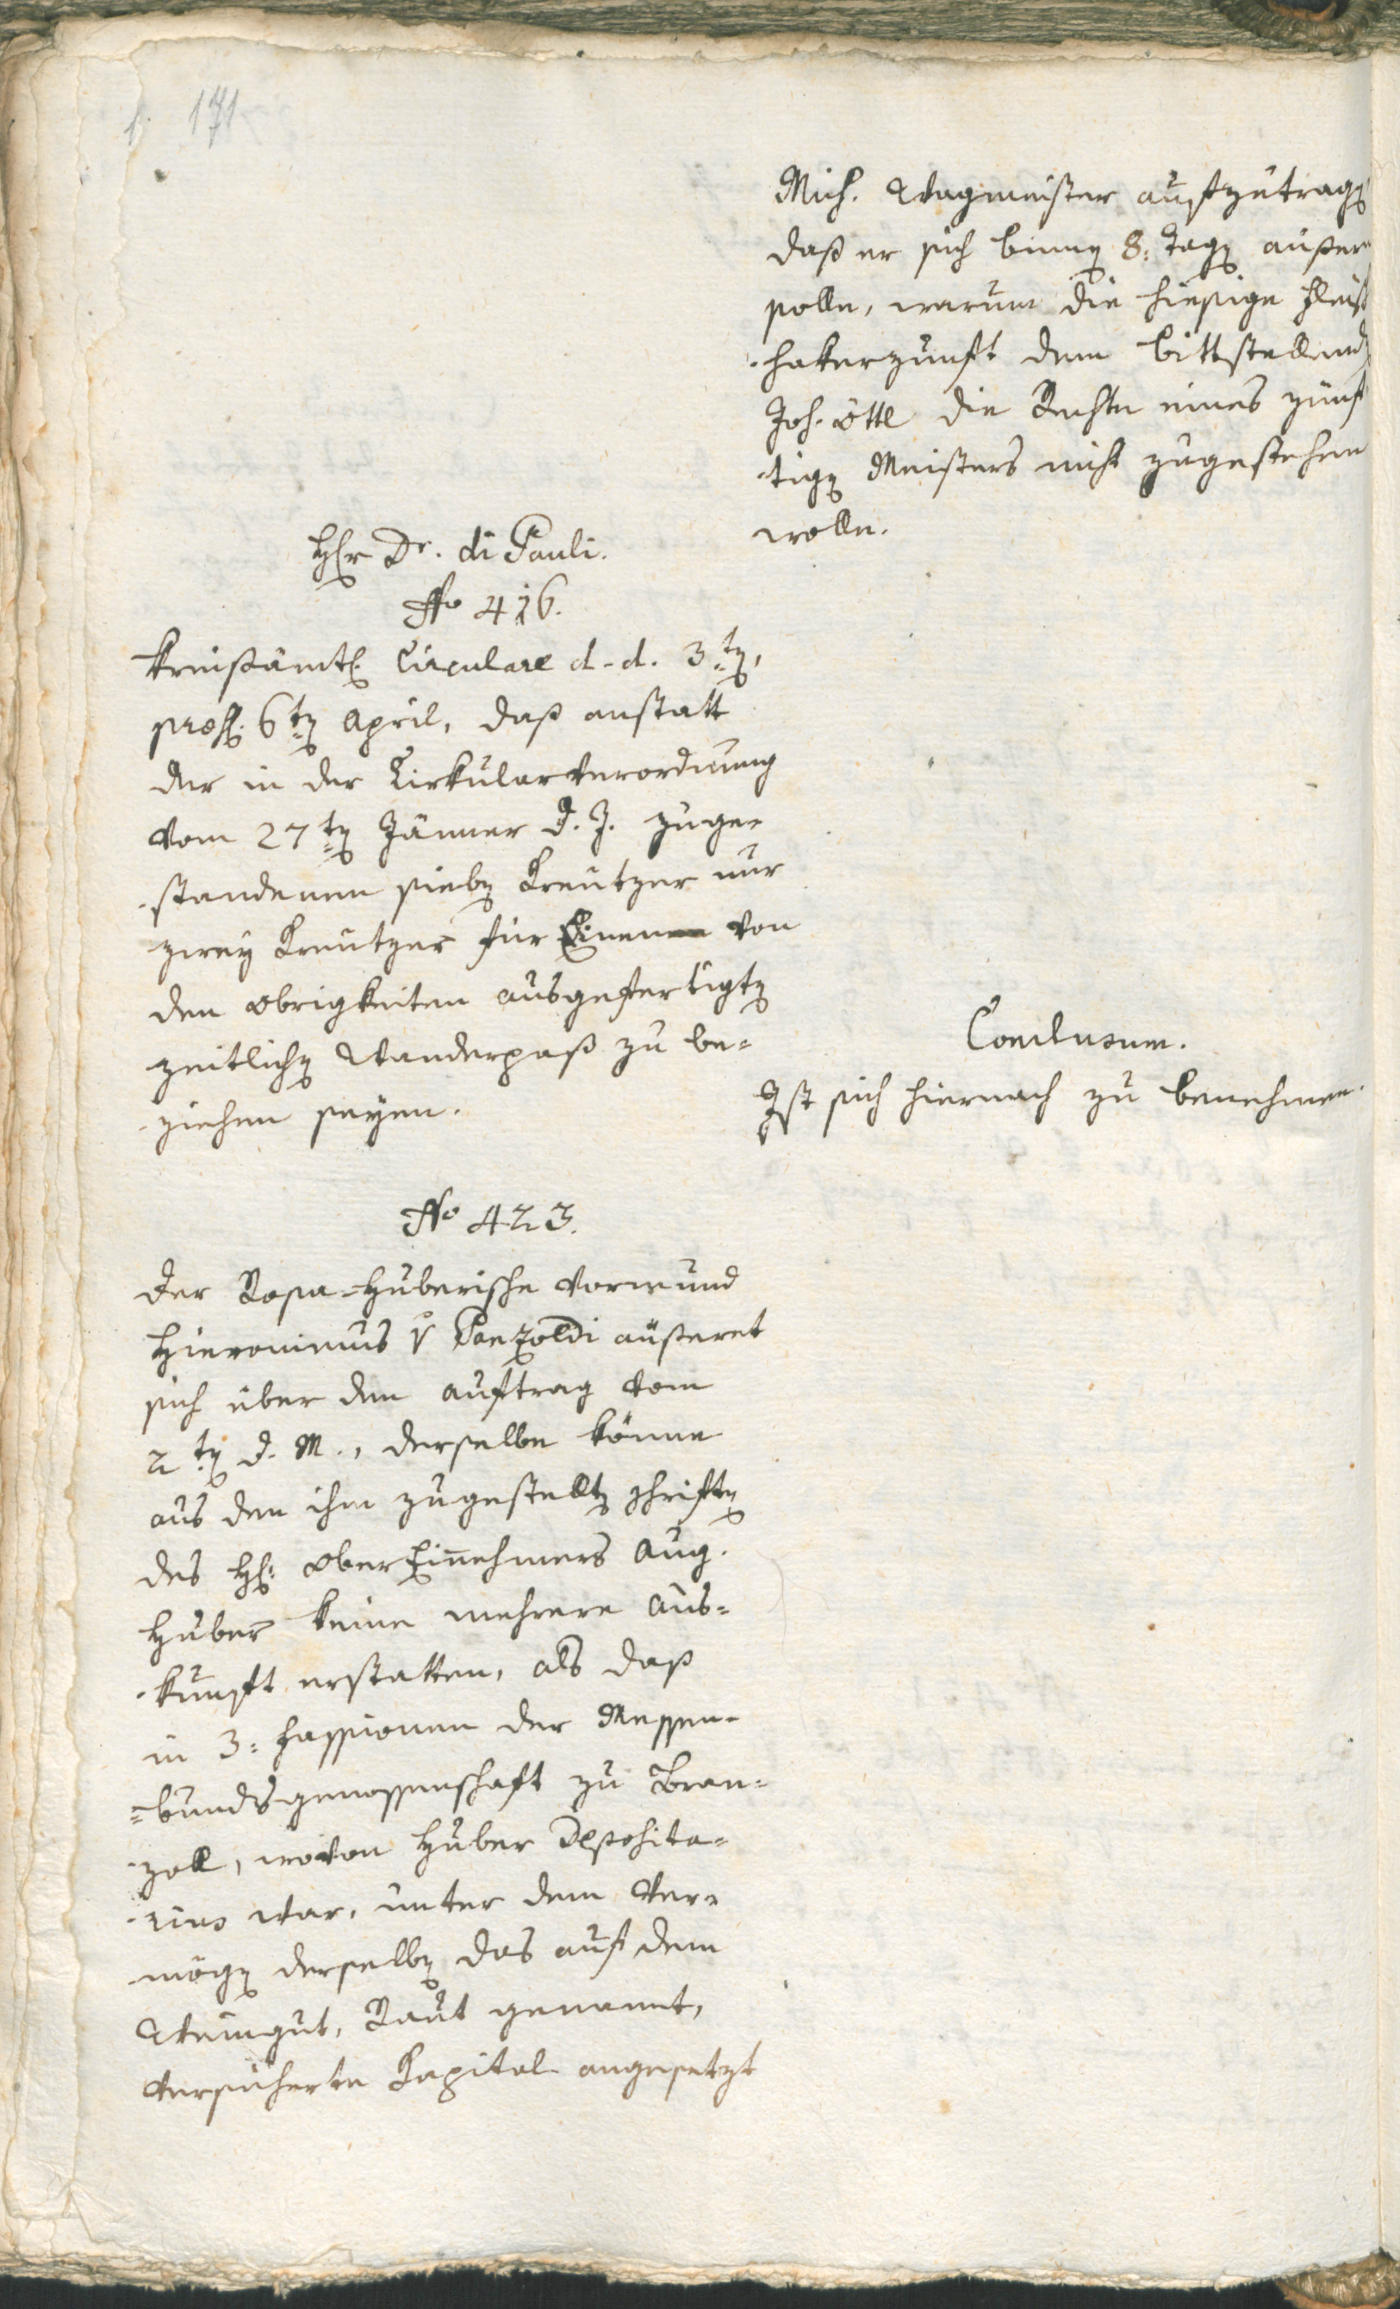 f. 171
Mich. Wagmeister aufzutragen
daß er sich binnen 8: Tagen äußeren
solle, warum die hiesige Fleisch
hakerzunft dem bittstellenden
Joh. Öttl die Rechte eines zünf
tigen Meisters nicht zugestehen
wolle.
Herr Dr. di Pauli.
No 416.
Kreisämtl. Circulare d. d. 3=ten,
præs. 6ten April, daß anstatt
der in der Cirkularverordnung
vom 27ten Jänner d. J. zuge-
standenen sieben Kreutzer nur
zwey Kreutzer für Einen von
den Obrigkeiten ausgefertigten
zeitlichen Wanderpaß zu be=
ziehen seyen.
Conclusum.
Ist sich hiernach zu benehmen.
No 423.
Der Rosa=Huberische Vormund
Hieronimus v Panzoldi äußeret
sich über den Auftrag vom
2ten d. M., derselbe könne
aus den ihm zugestellten Schriften
des H: Ober Einnehmers Aug.
Huber keine mehrere Aus=
kunft erstatten, als daß
in 3: Fassionen der Messen-
=bundsgenossenschaft zu Bran=
zoll, wovon Huber Deposita=
rius war, unter dem Ver=
mögen derselben das auf dem
Weingut, Raut genannt,
versicherte Kapital angesetzt